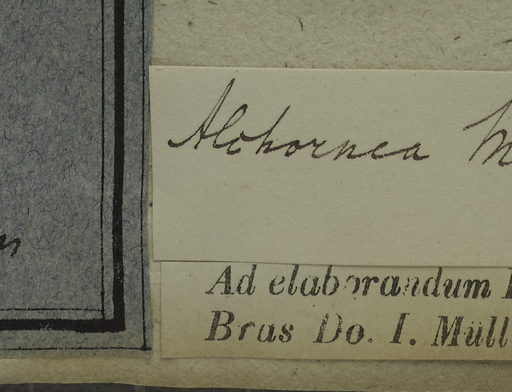 Alchornea
Ad elaborandum
Bras Do. I. Müll